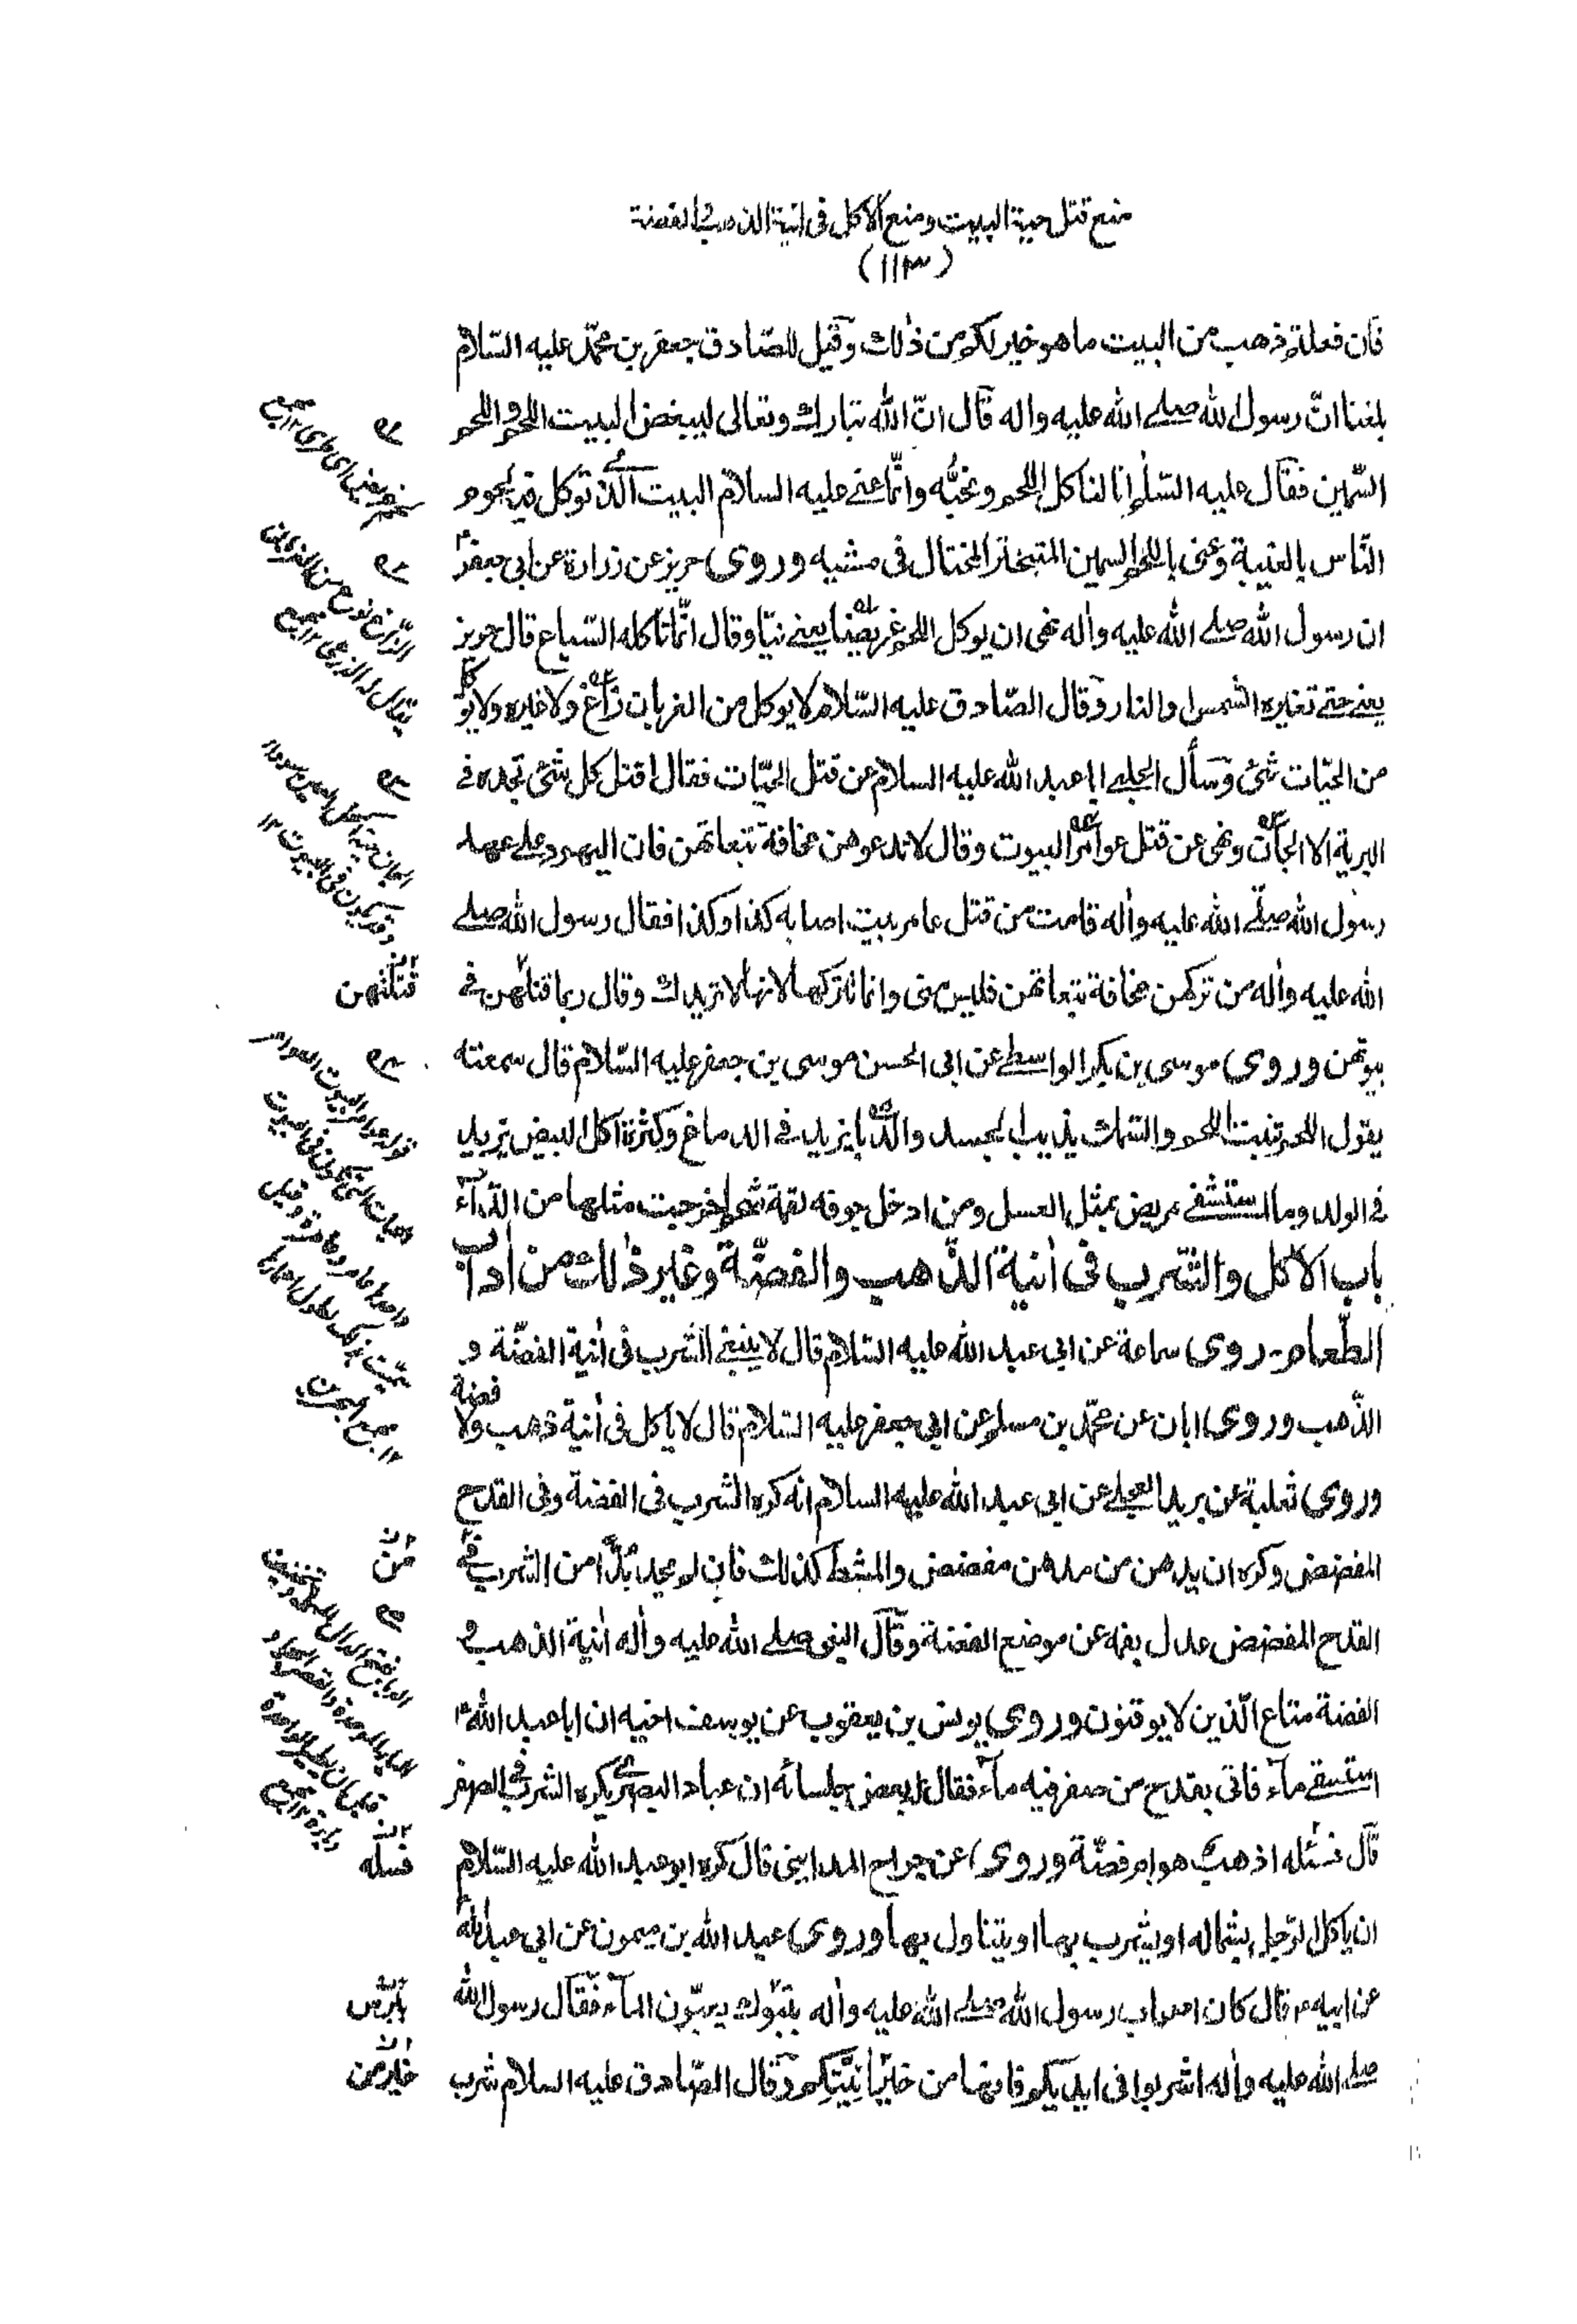 منع قتل حية البيت ومنع الاكل فى انية الذهب والفضة
(١١٣)
فان فعلتم ذهب من البيت ما هو خير لكم من ذٰلك وقيل للصّادق جعفر بن محمّد عليه السّلام
بلغنا انّ رسول الله صلے الله عليه واله قال انّ الله تبارك وتعالى ليبغض البيت اللحم واللحم
السّمين فقال عليه السّلام انا لناكل اللحم ونحبّه وانّما عنے عليه السلام البيت الّذى توكل فيه لحوم
النّاس بالغيبة وعنى باللحم السمين المتبختر المختال فى مشيه وروى حريز عن زرارة عن ابى جعفرؑ
ان رسول الله صلے الله عليه واٰله نهى ان يوكل اللحم غريضًا يعنے نيّا وقال انّما تاكله السّباع قال حريز
يعنے حتے تغيره الشمس او النار وقال الصّادق عليه السّلام لا يوكل من الغربان زاغ ولا غيره ولا يوكل
من الحيّات شئ وسأل الحلبے ابا عبد الله عليه السلام عن قتل الحيّات فقال اقتل كل شئ تجده فے
البرية الا الجانّ ونهى عن قتل عوامر البيوت وقال لا تدعوهن مخافة تبعاتهن فان اليهود علے عهد
رسول الله صلّے الله عليه واٰله قالت من قتل عامر بيت اصابه كذا وكذا فقال رسول الله صلے
الله عليه واٰله من تركهن مخافة تبعاتهن فليس منى وانما تتركها لانها لا تريدك وقال ربما قتلهن فے
قتلتهن
بيوتهن وروى موسى بن بكر الواسطے عن ابى الحسن موسى بن جعفر عليه السّلام قال سمعته
يقول اللحم تنبت اللحم والسّمك يذيب الجسد والدّبا يزيد فے الدماغ وكثرة اكل البيض تزيد
فے الولد وما استشفے مريض بمثل العسل ومن ادخل جوفه لقمة شحم اخرجت مثلها من الدّآء
باب الاكل والشّرب فى اٰنية الذّهب والفضّة وغير ذٰلك من اٰداب
الطّعام۔ روى سماعة عن ابى عبد الله عليه السّلام قال لا ينبغے الشّرب فى اٰنية الفضّة و
الذّهب وروى ابان عن محمّد بن مسلم عن ابى جعفر عليه السّلام قال لا ياكل فى اٰنية ذهب ولا فضة
وروى ثعلبة عن بريد العجلے عن ابى عبد الله عليه السلام انه كره الشّرب فى الفضة وفى القدح
المفضض وكره ان يدهن من مدهن مفضض والمشط كذلك فان لم يجد بدًّا من الشرب فے
من
القدح المفضض عدل بفمه عن موضع الفضة وقال النبى صلے الله عليه واٰله اٰنية الذهب و
الفضة متاع الّذين لا يوقنون وروى يونس بن يعقوب عن يوسف اخيه ان ابا عبد اللهؑ
استسقے ماء فاتى بقدح من صفر فيه ماء فقال له بعض جلسائه ان عباد البصرى يكره الشرب فى الصفر
قال فسئله اذهب هو ام فضّة وروى عن جراح المداينى قال كره ابو عبد الله عليه السّلام
فسله
ان ياكل الرّجل بشماله او يشرب بها او يتناول بها وروى عبد الله بن ميمون عن ابى عبد اللهؑ
عن ابيهؑ قال كان اصحاب رسول الله صلے الله عليه واٰله بتبوك يعبّون الماء فقال رسول الله
صلے الله عليه واٰله اشربوا فى ايديكم فانها من خير اٰنيتكم وقال الصّادق عليه السلام شرب
خير من